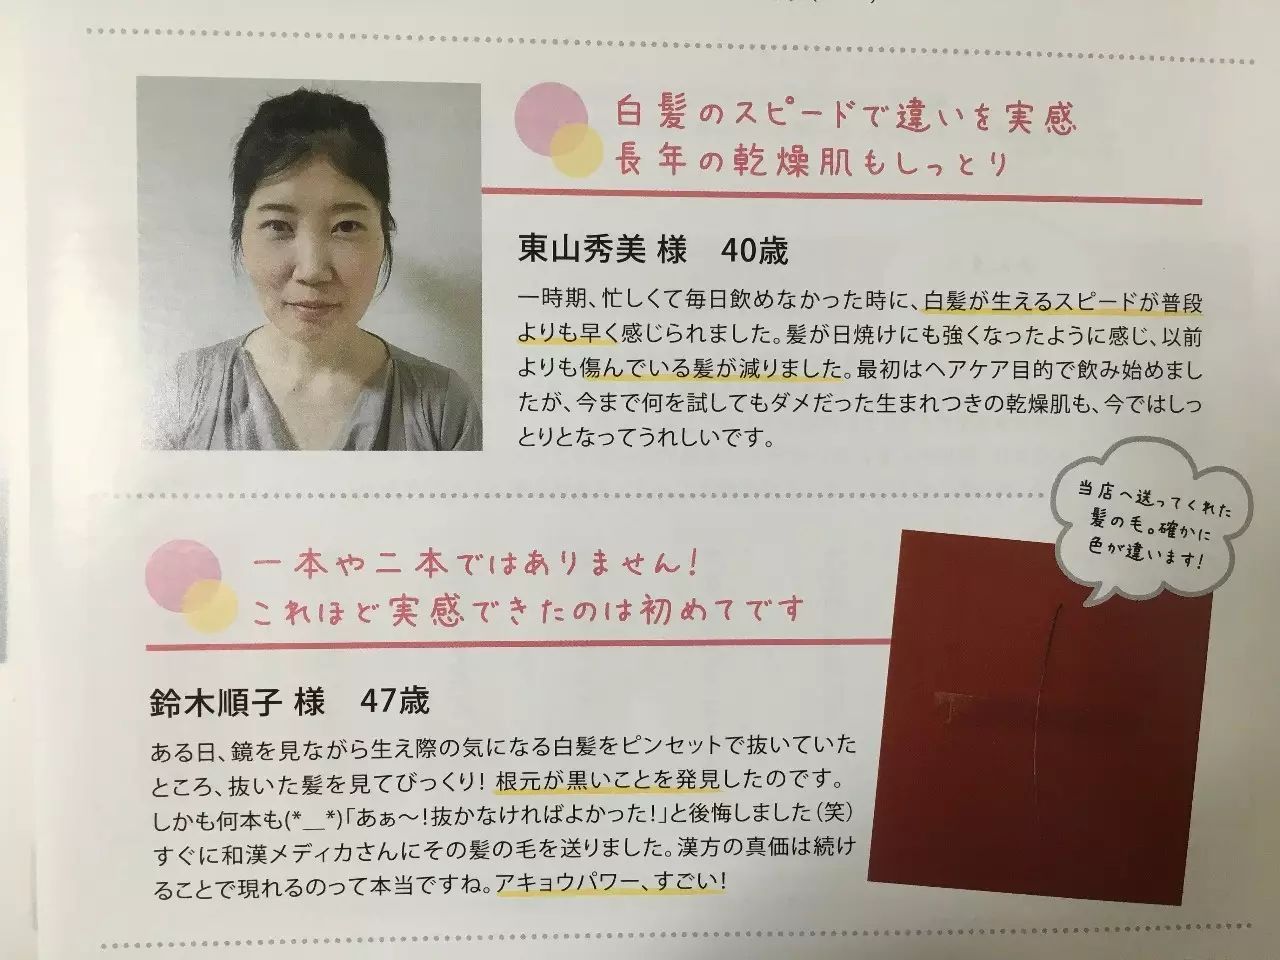 白髪のスピードで違いを実感
長年の乾燥肌もしっとり
東山秀美 様　40歳
一時期、忙しくて毎日飲めなかった時に、白髪が生えるスピードが普段
よりも早く感じられました。髪が日焼けにも強くなったように感じ、以前
よりも傷んでいる髪が減りました。最初はヘアケア目的で飲み始めまし
たが、今まで何を試してもダメだった生まれつきの乾燥肌も、今ではしっ
とりとなってうれしいです。
当店へ送ってくれた
髪の毛。確かに
色が違います!
一本や二本ではありません!
これほど実感できたのは初めてです
鈴木順子 様　47歳
ある日、鏡を見ながら生え際の気になる白髪をピンセットで抜いていた
ところ、抜いた髪を見てびっくり! 根元が黒いことを発見したのです。
しかも何本も(*__*)「あぁ〜!抜かなければよかった!」と後悔しました（笑）
すぐに和漢メディカさんにその髪の毛を送りました。漢方の真価は続け
ることで現れるのって本当ですね。アキョウパワー、すごい!